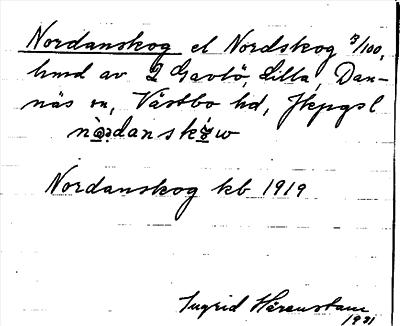 Nordanskog el Nordskog 3/100,
hmd av 2 Gavlö, Lilla, Dan-
näs sn, Västbo hd, Jkpgsl
Nordanskog kb 1919
Ingrid Härenstam
1931